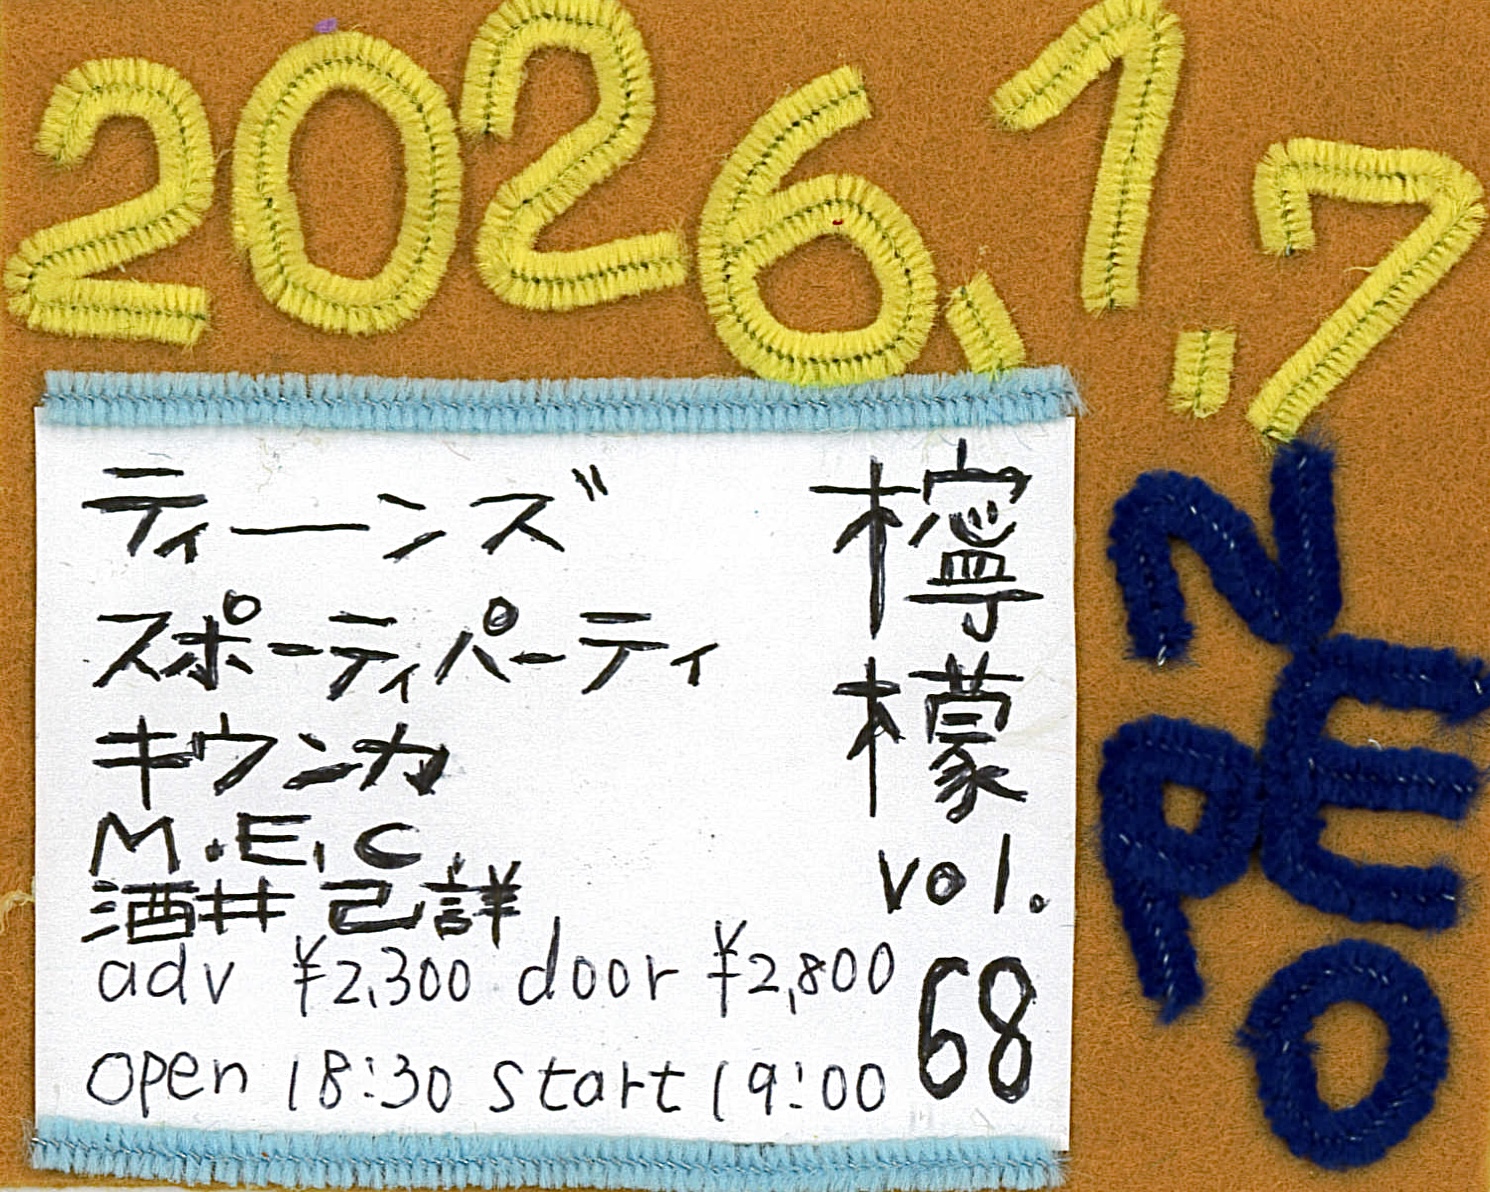 2026.1.7
ティーンズ
スポーティパーティ
キウンカ
M.E.C.
酒井己詳
adv ¥2,300 door ¥2,800
open 18:30 start 19:00
檸檬
vol.
68
NEPO